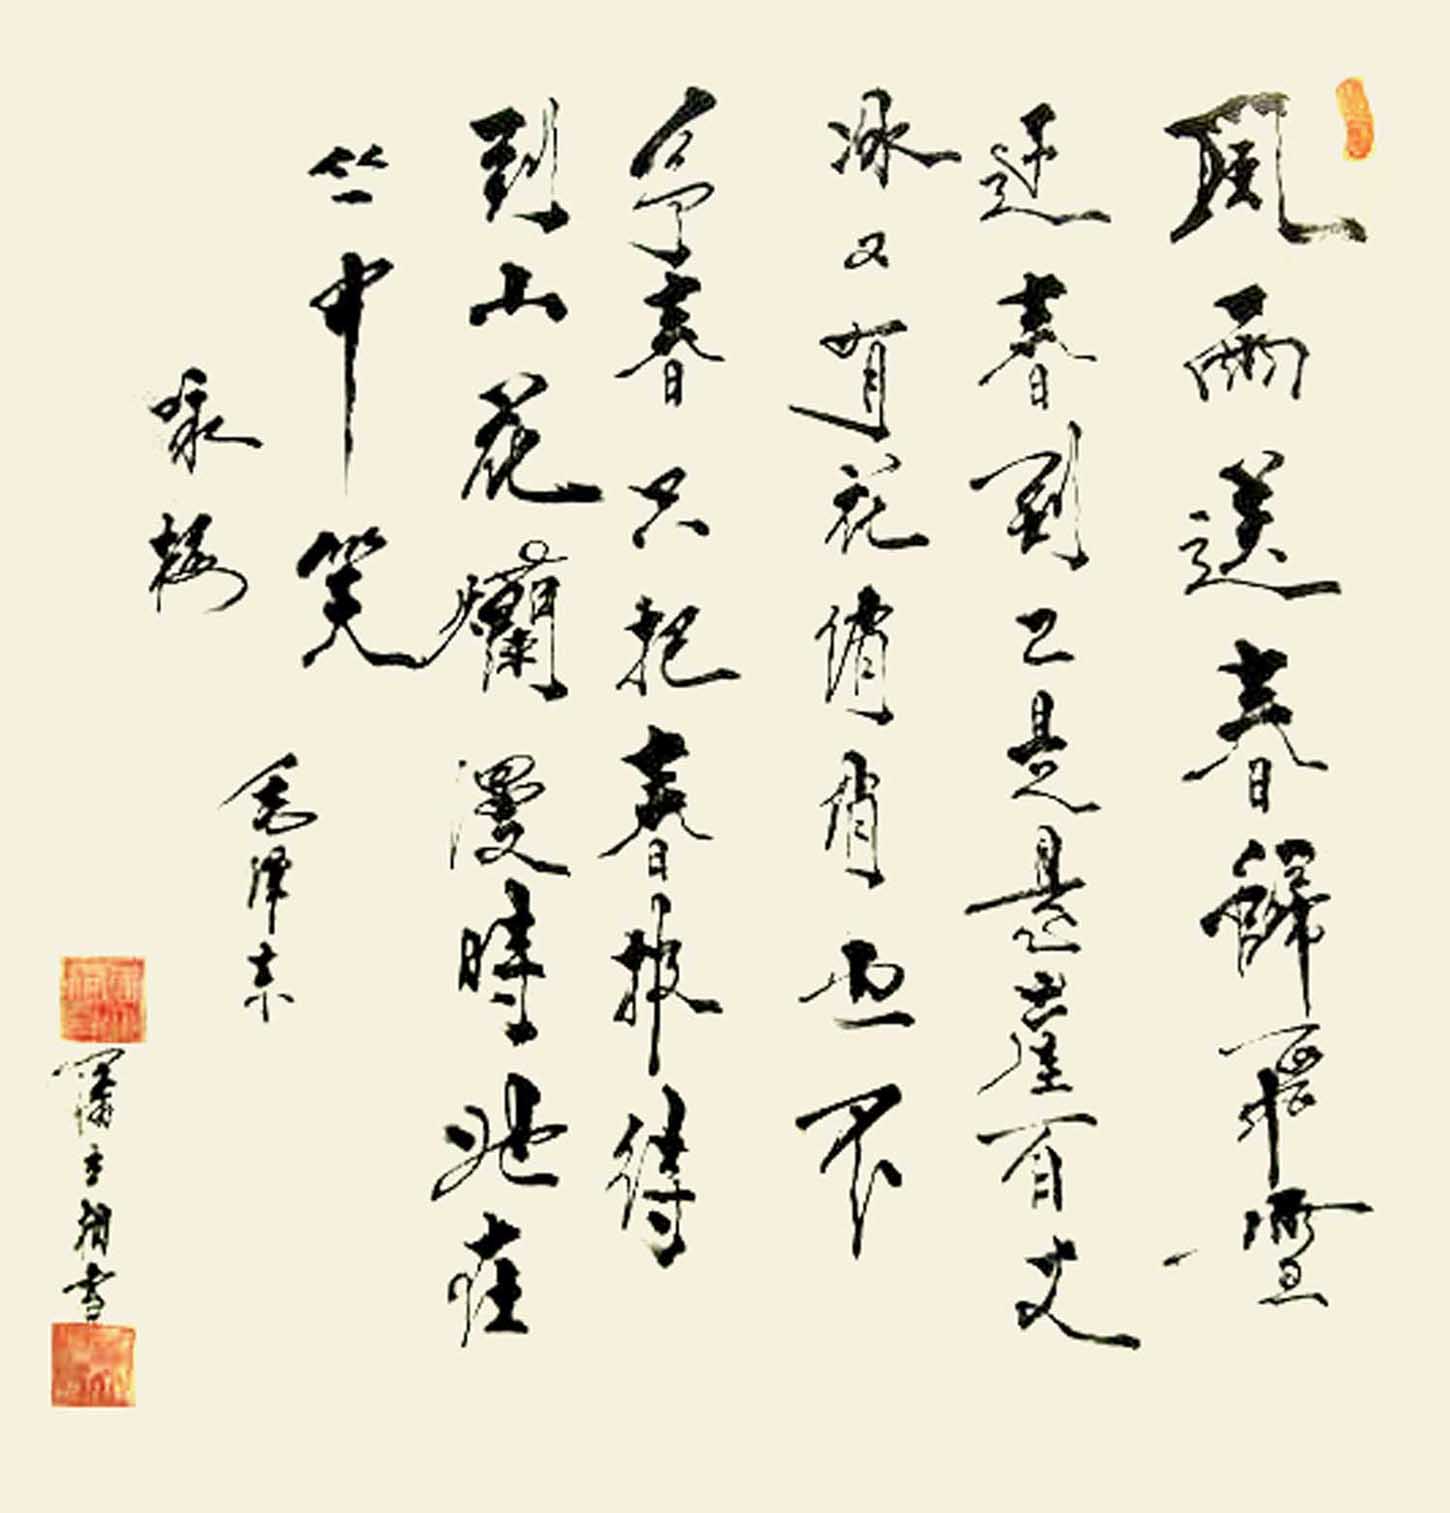 風雨送春歸飛雪
迎春到已是悬崖百丈
冰又有花俏俏也不
争春只把春报待
到山花爛漫時她在
丛中笑
毛泽东
咏梅